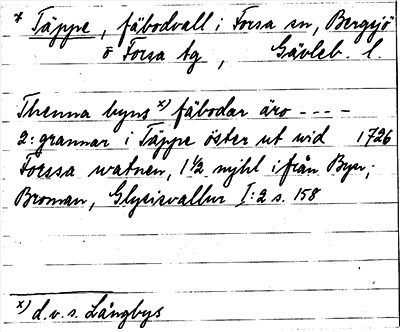 * Täppe, fäbodvall i Forsa sn, Bergsjö
o Forsa tg, Gävleb. l.
Thenna byns x) fäbodar äro ----
2: grannar i Täppe öster ut wid 1726
Forssa watnen, 1 1/2 mjhl ifrån Byn;
Broman, Glysisvallur I:2 s. 158
x) d.v.s. Långbys